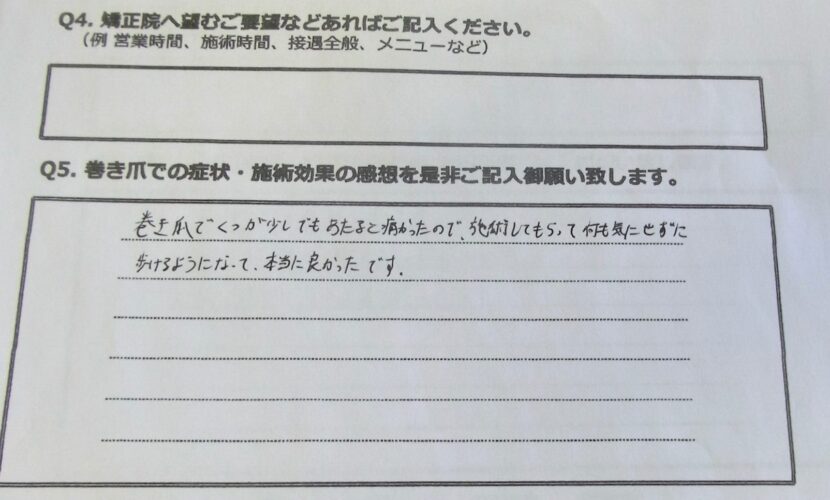 Q4. 矯正院へ望むご要望などあればご記入ください。
（例 営業時間、施術時間、接遇全般、メニューなど）
Q5. 巻き爪での症状・施術効果の感想を是非ご記入御願い致します。
巻き爪でくつが少しでもあたると痛かったので、施術してもらって何も気にせずに
歩けるようになって、本当に良かったです。